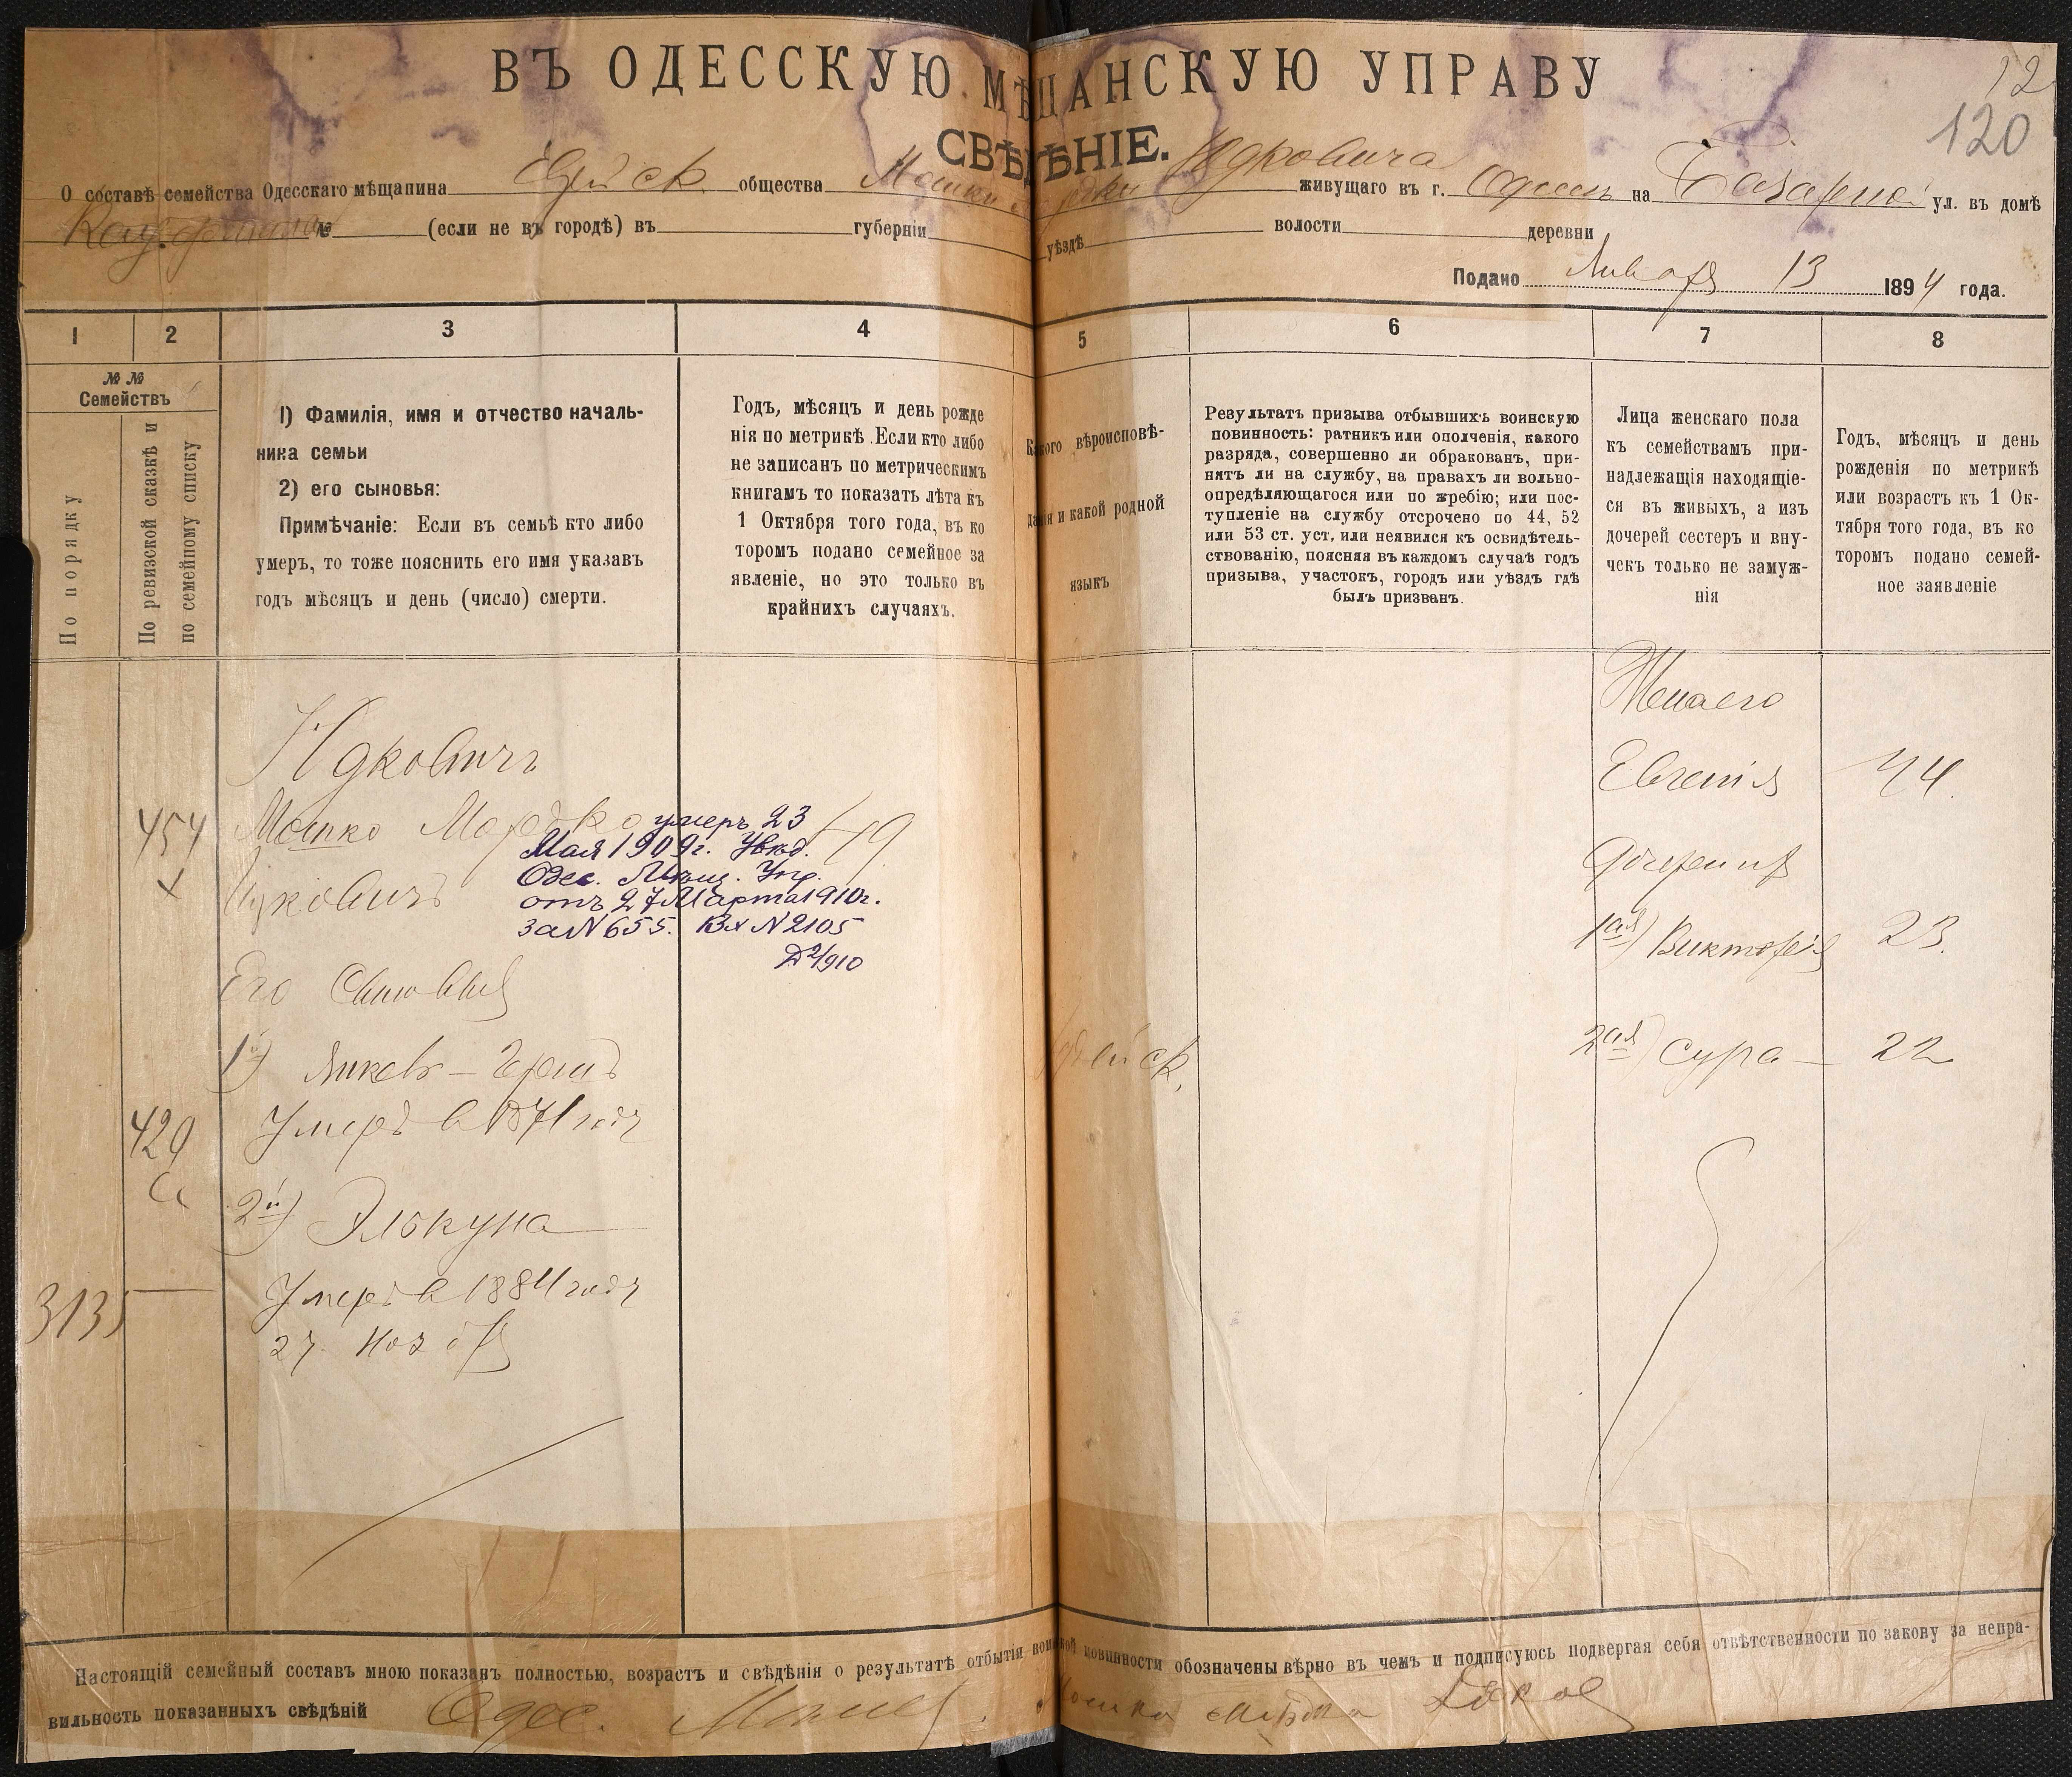 ВЪ ОДЕССКУЮ МѢЩАНСКУЮ УПРАВУ
12
120
СВѢДѢНІЕ.
О составѣ семейства Одесскаго мѣщанина Еврейск. общества Мошки Мордки Юдковича живущаго въ г. Одессѣ на Базарной ул. въ домѣ
№ (если не въ городѣ) въ губерніи уѣздѣ волости деревни
Подано Января 13 1894 года.
1 2 3 4 5 6 7 8
№ №
Семействъ
По порядку
По ревизской сказкѣ и
по семейному списку
1) Фамилія, имя и отчество началь-
ника семьи
2) его сыновья:
Примѣчаніе: Если въ семьѣ кто либо
умеръ, то тоже пояснить его имя указавъ
годъ мѣсяцъ и день (число) смерти.
Годъ, мѣсяцъ и день рожде
нія по метрикѣ. Если кто либо
не записанъ по метрическимъ
книгамъ то показать лѣта къ
1 Октября того года, въ ко
торомъ подано семейное за
явленіе, но это только въ
крайнихъ случаяхъ.
Какого вѣроисповѣ-
данія и какой родной
языкъ
Результатъ призыва отбывшихъ воинскую
повинность: ратникъ или ополченія, какого
разряда, совершенно ли обракованъ, при-
нятъ ли на службу, на правахъ ли вольно-
опредѣляющагося или по жребію; или пос-
тупленіе на службу отсрочено по 44, 52
или 53 ст. уст. или неявился къ освидѣтель-
ствованію, поясняя въ каждомъ случаѣ годъ
призыва, участокъ, городъ или уѣздъ гдѣ
былъ призванъ.
Лица женскаго пола
къ семействамъ при-
надлежащія находящіе-
ся въ живыхъ, а изъ
дочерей сестеръ и вну-
чекъ только не замуж-
нія
Годъ, мѣсяцъ и день
рожденія по метрикѣ
или возрастъ къ 1 Ок-
тября того года, въ ко
торомъ подано семей-
ное заявленіе
Юдковичъ
454
х
Мошко Мордко 49
Юдковичъ
умеръ 23
Мая 1909г. Увѣд.
Одес. Мѣщ. Упр.
отъ 27 Марта 1910г.
за N 655. Вх N 2105
Д 2/910
Его Сыновья
1й) Янкель - Гершъ
Умеръ в 1871 году
420
2й) Элькуна
Умеръ в 1884 году
27 Ноября
3135
Еврейск.
Жена его
Евгенія 44
Дочери их
1ая) Викторія 23.
2ая) Сура - 22
Настоящій семейный составъ мною показанъ полностью, возрастъ и свѣдѣнія о результатѣ отбытія воинской повинности обозначены вѣрно въ чемъ и подписуюсь подвергая себя отвѣтственности по закону за непра-
вильность показанныхъ свѣдѣній Одес. Мѣщ. Мошка Мордка